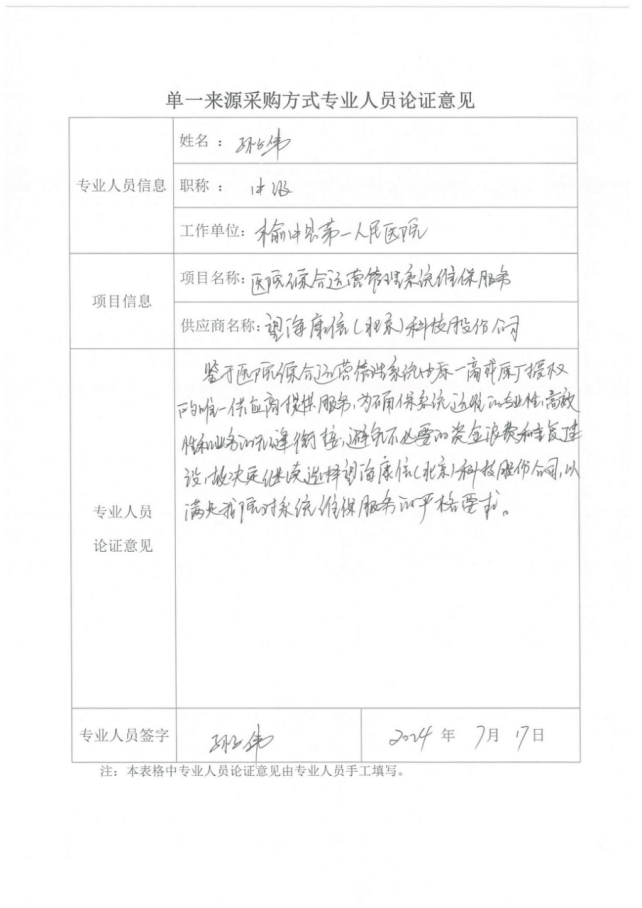 单一来源采购方式专业人员论证意见
专业人员信息
姓名：
伟
职称：中级
工作单位：榆中县第一人民医院
项目信息
项目名称：医院综合运营管理系统维保服务
供应商名称：望海康信（北京）科技股份公司
专业人员
论证意见
鉴于医院综合运营管理系统由原厂授权
的唯一供应商提供服务，为确保系统运维的专业性、高效
性和业务的无缝衔接，避免不必要的资金浪费和重复建
设，故决定继续选择望海康信（北京）科技股份公司，以
满足我院对系统维保服务的严格要求。
专业人员签字
伟
2024 年 7月 17日
注：本表格中专业人员论证意见由专业人员手工填写。